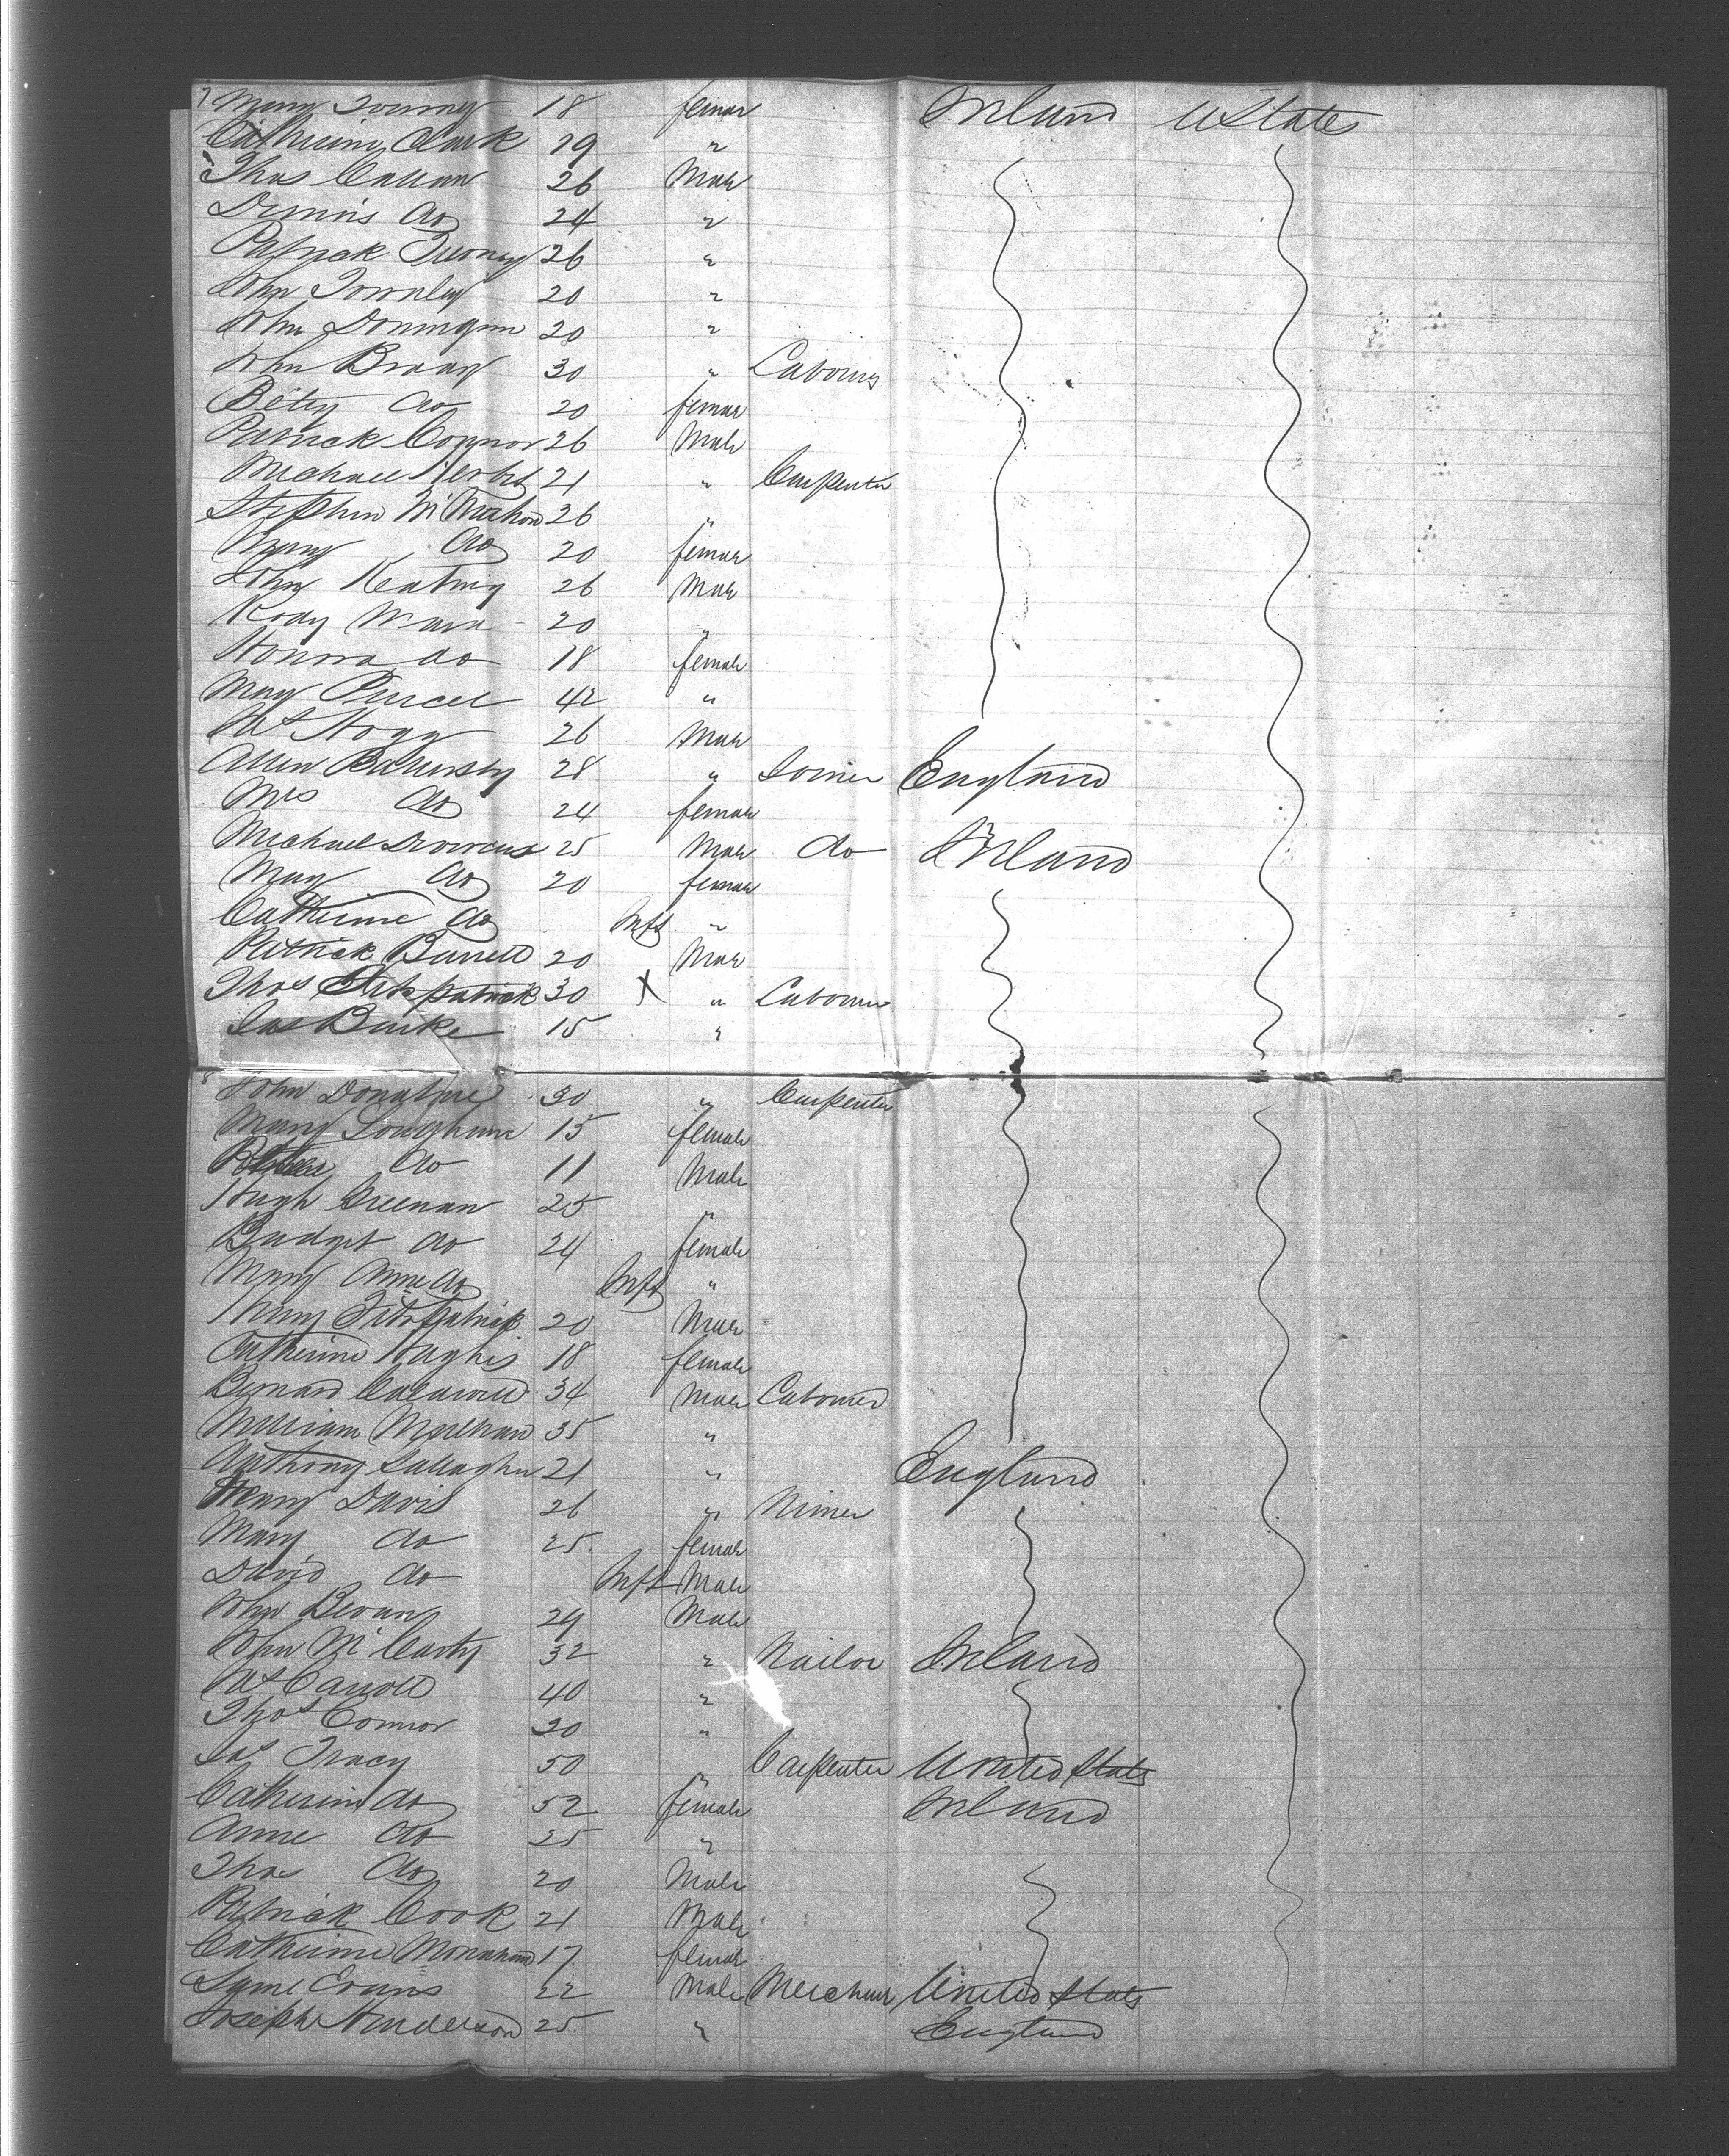 7 Mary 18 female Ireland U States
Catherine Clark 29 "
Thos Callan 26 Male
Dennis do 24 "
Patrick 26 "
John Townley 20 "
John 20 "
John Brady 30 " Labourer
Betty do 20 female
Patrick Connor 26 Male
Michael 21 " Carpenter
Stephen McMahon 26 "
Mary do 20 female
John Keating 26 Male
Rody 20 "
Honora do 18 female
Mary Purcel 42 "
Pat Hogg 26 Male
Allen Battersby 28 " Joiner England
Mrs do 24 female
Michael 25 Male do Ireland
Mary do 20 female
Catherine do Inft "
Patrick Burrell 20 Male
Thos Fitzpatrick 30 X " Labourer
Jas Burke 15 "
8 John Donahue 30 " Carpenter
Mary 15 female
do 11 Male
Hugh Greenan 25 "
Bridget do 24 female
Mary Anne do Inft "
Fitzpatrick 20 Male
Catherine Hughes 18 female
Bernard 34 Male Labourer
William 35 "
Anthony Gallagher 21 " England
Henry Davis 26 " Miner
Mary do 25 female
David do Inft Male
John Bevans 29 Male
John McCarty 32 " Nailor Ireland
Pat Carroll 40 "
Thos Connor 30 "
Jas Tracy 50 " Carpenter United States
Catherine do 52 female Ireland
Anne do 25 "
Thos do 20 Male
Patrick Cook 21 Male
Catherine Monahan 17 female
Evans 22 Male United States
Joseph Henderson 25 " England